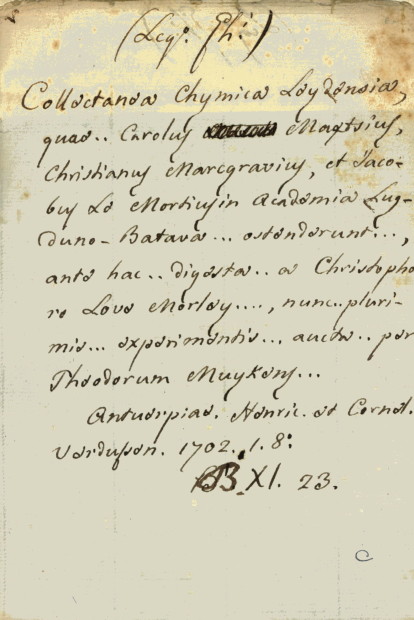 (Leg. Ph:)
Collectanea Chymica Leydensia,
quae.. Carolus Maetsius,
Christianus Marcgravius, et Jaco-
bus Le Mortiusin Academia Lug-
duno-Batava... ostenderunt...,
ante hac.. digesta.. a Christopho
ro Love Morley...., nunc..pluri-
mis... experimentis... aucta.. per
Theodorum Muykens...
Antuerpiae. Henric. et Cornel.
Verdussen. 1702. 1. 8:
B. XI. 23.
C